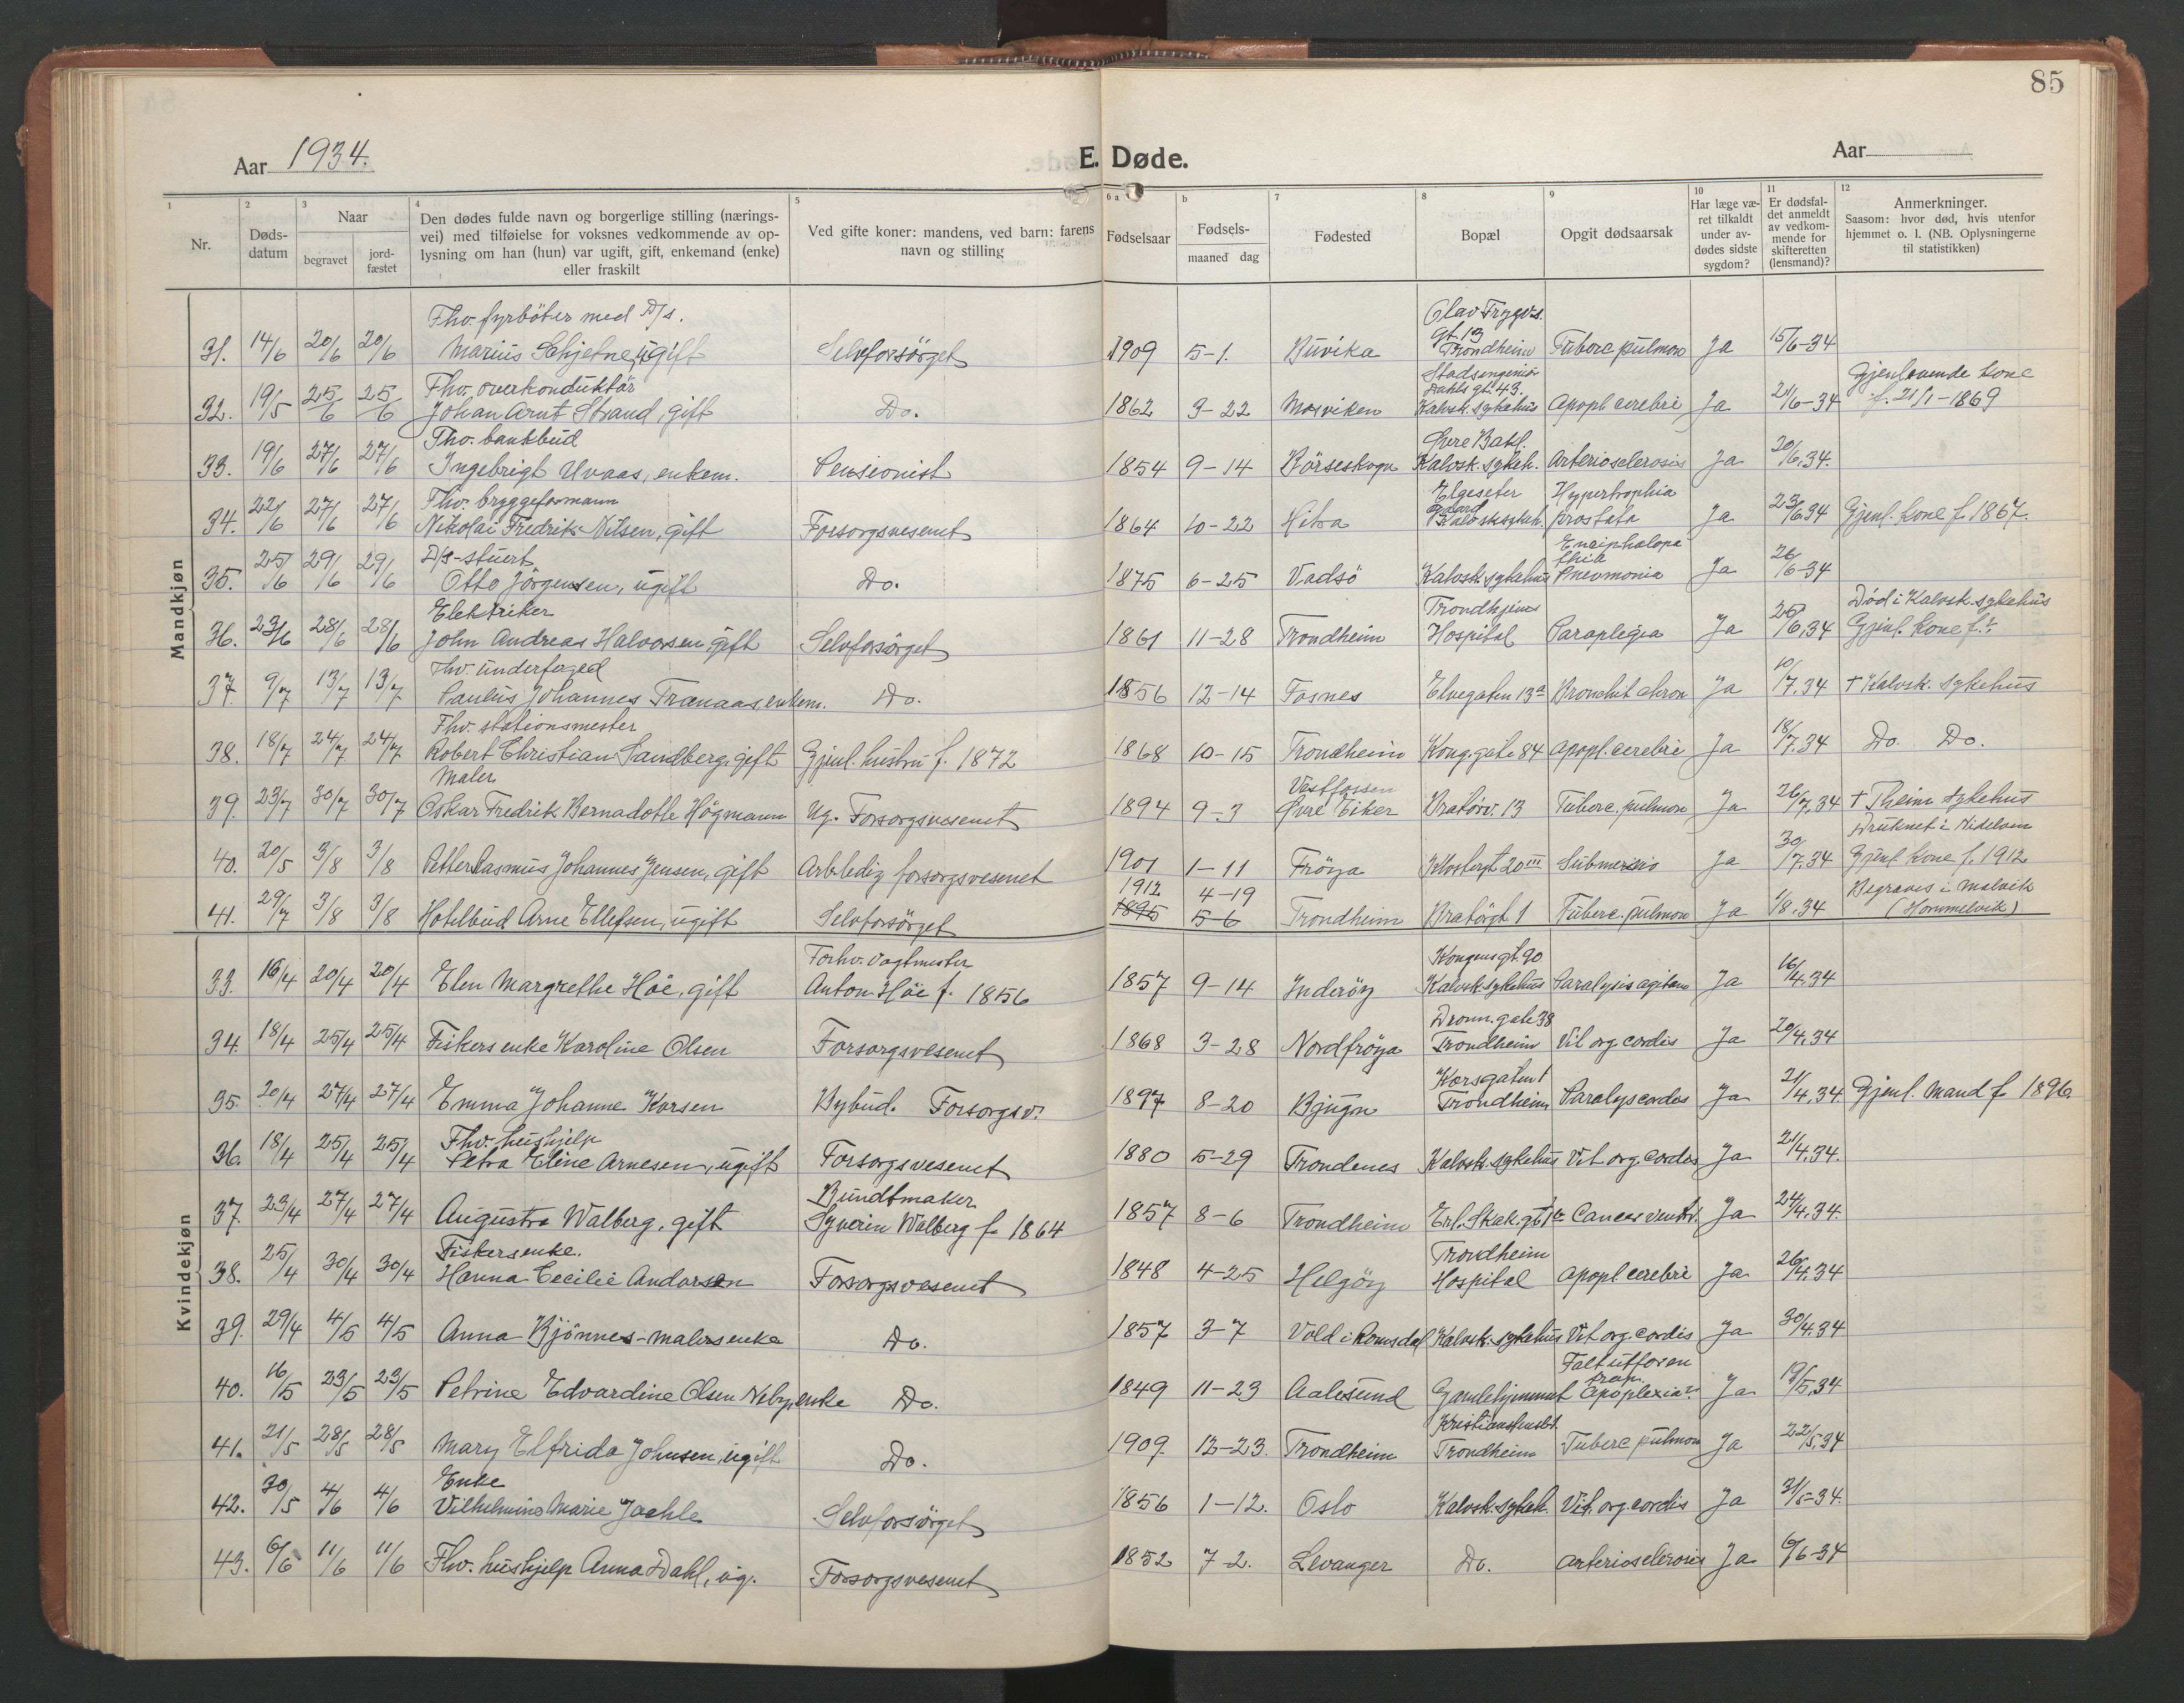 85
Aar 1934.
E. Døde.
Aar
1 2 3 4 5 6 a b 7 8 9 10 11 12
Nr.
Døds-
datum
Naar
begravet
jord-
fæstet
Den dødes fulde navn og borgerlige stilling (nærings-
vei) med tilføielse for voksnes vedkommende av op-
lysning om han (hun) var ugift, gift, enkemand (enke)
eller fraskilt
Ved gifte koner: mandens, ved barn: farens
navn og stilling
Fødselsaar
Fødsels-
maaned dag
Fødested
Bopæl
Opgit dødsaarsak
Har læge væ-
ret tilkaldt
under av-
dødes sidste
sygdom?
Er dødsfal-
det anmeldt
av vedkom-
mende for
skifteretten
(lensmand)?
Anmerkninger.
Saasom: hvor død, hvis utenfor
hjemmet o. l. (NB. Oplysningerne
til statistikken)
Mandkjøn
Fhv. fyrböter med D/s. Olav Trygvs.
gt. 13
31. 14/6 20/6 20/6 Marius Schjetne, ugift Selvforsörget 1909 5-1. Buvika Trondheim Tuberc pulmon Ja 15/6-34
Fhv. overkonduktör Stadsingeniör Gjenlevende kone
Dahls gt. 43.
32. 19/5 25/6 25/6 Johan Arnt Strand, gift Do. 1862 9-22 Mosviken Kalvsk. sykehus Apopl cerebri Ja 21/6-34 f. 21/1-1869
Fhv. bankbud Övre Bakl.
33. 19/6 27/6 27/6 Ingebrigt Uvaas, enkem. Pensionist 1854 9-14 Börseskogn Kalvsk. sykeh. Arteriosclerosis Ja 20/6.34.
Fhv. bryggeformann Elgeseter Hypertrophia
34. 22/6 27/6 27/6 Nikolai Fredrik Nilsen, gift Forsorgsvesenet 1864 10-22 Hitra Kalvsk sykeh. prostata Ja 23/6.34 Gjenl. kone f. 1867.
D/s-stuert Enciphalopa
thia
35. 25/6 29/6 29/6 Otto Jörgensen, ugift Do. 1875 6-25 Vadsö Kalvsk. sykehus Pneumonia Ja 26/6-34
Elektriker Trondhjems Död i Kalvsk. sykehus
36. 23/6 28/6 28/6 John Andreas Halvorsen, gift Selvforsörget 1861 11-28 Trondheim Hospital Paraplegia Ja 25/6.34 Gjenl. kone f.?
Fhv. underfoged
37. 9/7 13/7 13/7 Paulus Johannes Tranaas, enkem. Do. 1856 12-14 Fosnes Elvegaten 13a Bronchit chron Ja 10/7.34 † Kalvsk. sykehus
Fhv. stationsmester
38. 18/7 24/7 24/7 Robert Christian Sandberg, gift Gjenl. hustru f. 1872 1868 10-15 Trondheim Kong. gate 84 Apopl. cerebri Ja 18/7.34 Do. Do.
Maler Vestfossen
39. 23/7 30/7 30/7 Oskar Fredrik Bernadotte Högmann Ug. Forsorgsvesenet 1894 9-3 Övre Eiker Bratörv. 13 Tuberc. pulmon Ja 26/7.34 † Theim sykehus
Druknet i Nidelven
40. 20/5 3/8 3/8 Petter Rasmus Johannes Jensen, gift Arb.ledig forsorgsvesenet 1901 1-11 Fröya Klostergt 20 III Submersio Ja 30/7.34 Gjenl kone f. 1912.
1912 4-19 Begraves i Malvik
41. 29/7 3/8 3/8 Hotelbud Arne Ellefsen, ugift Selvforsörget 1895 5-6 Trondheim Bratörgt 1 Tuberc. pulmon Ja 1/8.34 (Hommelvik)
Kvindekjøn
Forhv. vagtmester Kongensgt. 90
33. 16/4 20/4 20/4 Elen Margrethe Höe, gift Anton Höe f. 1856 1857 9-14 Inderöy Kalvsk. sykehus Paralysis agitans Ja 16/4.34
Dronn. gate 38
34. 18/4 25/4 25/4 Fiskersenke Karoline Olsen Forsorgsvesenet 1868 3-28 Nordfröya Trondheim Vit org. cordis Ja 20/4.34
Korsgaten 1
35. 20/4 27/4 27/4 Emma Johanne Korsen Bybud. Forsorgsv. 1897 8-20 Bjugn Trondheim Paralys cordis Ja 21/4.34. Gjenl. mand f 1896
Fhv. hushjelp
36. 18/4 25/4 25/4 Petra Eline Arnesen, ugift Forsorgsvesenet 1880 5-29 Trondenes Kalvsk. sykehus Vit org. cordis Ja 21/4.34.
Bundtmaker
37. 23/4 27/4 27/4 Augusta Walberg, gift Syverin Walberg f. 1864 1857 8-6 Trondheim Erl. Skak. gt Cancer ventr. Ja 24/4.34.
Fiskersenke. Trondheim
38. 25/4 30/4 30/4 Hanna Cecilie Andorsen Forsorgsvesenet 1848 4-25 Helgöy Hospital Apopl cerebri Ja 26/4.34
39. 29/4 4/5 4/5 Anna Bjönnes - malersenke Do. 1857 3-7 Vold i Romsdal Kalvsk. sykehus Vit org. cordis Ja 30/4.34
Falt utfor en
trap.
40. 16/5 23/5 23/5 Petrine Edvardine Olsen Neby, enke Do. 1849 11-23 Aalesund Gamlehjemmet Apoplexia? Ja 19/5.34
41. 21/5 28/5 28/5 Mary Elfrida Johnsen, ugift Do. 1909. 12-23. Trondheim Trondheim Tuberc pulmon Ja 22/5.34
Enke
42. 30/5 4/6 4/6 Vilhelmine Marie Jaehle Selvforsörget 1856 1-12. Oslo Kalvsk. sykeh. Vit. org. cordis Ja 31/5-34.
43. 6/6 11/6 11/6 Fhv. hushjelp Anna Dahl, ug. Forsorgsvesenet 1852 7-2. Levanger Do. Arteriosclerosis Ja 6/6-34